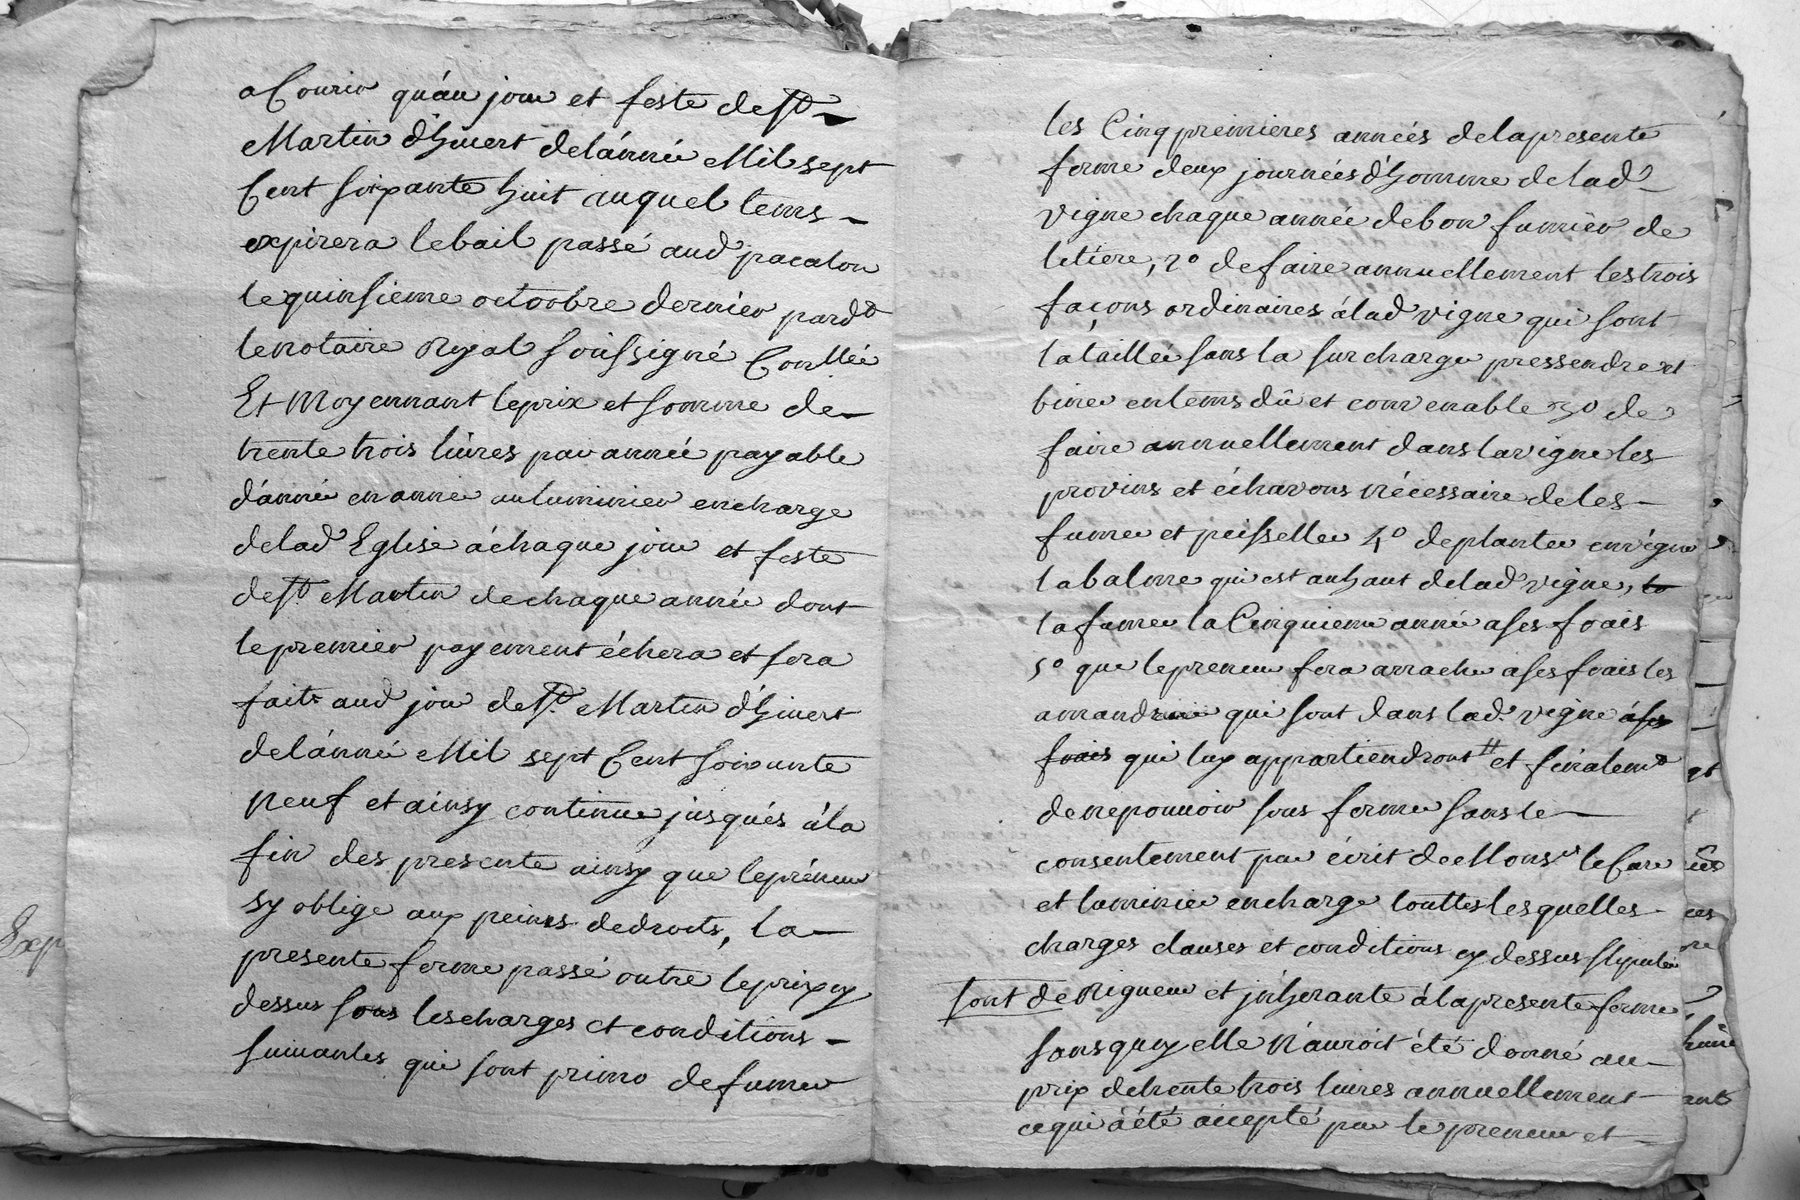 a Courir qu'au jour et feste de St
Martin d'hivert de l'année Mil sept
Cent soixante huit auquel tems
expirera le bail passé aud pacalon
le quinsieme octoobre dernier pard
le notaire Royal soussigné Conllée
Et Moyennant le prix et somme de
trente trois livres par année payable
d'année en année au luminier en charge
de lad Eglise à chaque jour et feste
de St Martin de chaque année dont
le premier payement échera et sera
fait aud jour de St Martin d'hivert
de l'année Mil sept Cent soixante
neuf et ainsy continuer jusqués à la
fin des presente ainsy que le préneur
sy oblige aux peines de droits, la
presente ferme passé outre le prix cy
dessus sous les charges et conditions
suivantes qui sont primo de fumer
les Cinq premieres années de la presente
ferme deux journées d'homme de lad
vigne chaque année de bon fumier de
litiere, 2o de faire annuellement les trois
façons ordinaires à lad vigne qui sont
la tailler sans la surcharger pressendre et
biner en tems dû et convenable 3o de
faire annuellement dans la vigne les
provins et échavons nécessaire de les
fumer et peisseller 4o de planter en vigne
la balme qui est au haut de lad vigne, la
la fumer la Cinquieme année a ses frais
5o que le preneur fera arracher a ses frais les
amandriers qui sont dans lad. vigne à ses
frais qui luy appartiendront # et finalemt
de ne pouvoir sous fermer sans le
consentement par écrit de Monsr le Cure
et luminier en charge touttes lesquelles
charges clauses et conditions cy dessus stipulée
sont de Rigueur et jnherante à la presente ferme
sans quoy elle n'auroit été donné au
prix de trente trois livres annuellement
ce qui à été accepté par le preneur et